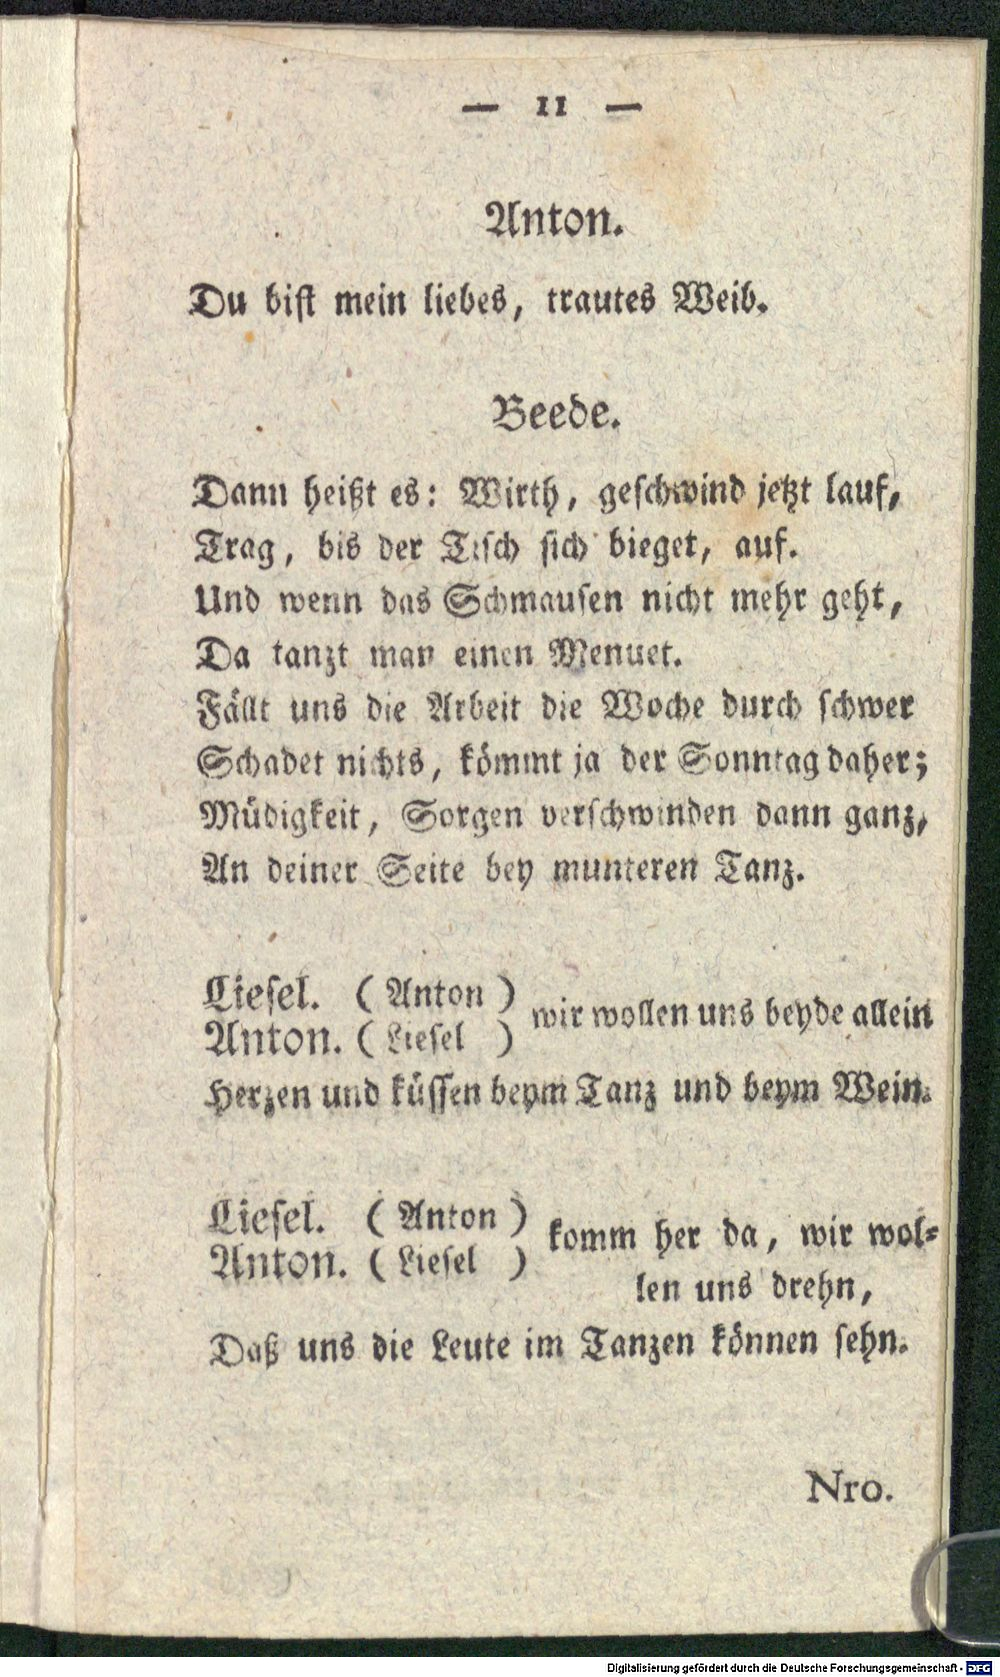 — 11 —
Anton.
Du bist mein liebes, trautes Weib.
Beede.
Dann heißt es: Wirth, geschwind jetzt lauf,
Trag, bis der Tisch sich bieget, auf.
Und wenn das Schmausen nicht mehr geht,
Da tanzt man einen Menuet.
Fällt uns die Arbeit die Woche durch schwer
Schadet nichts, kömmt ja der Sonntag daher;
Müdigkeit, Sorgen verschwinden dann ganz,
An deiner Seite bey munteren Tanz.
Liesel. ( Anton )
Anton. ( Liesel ) wir wollen uns beyde allein
Herzen und küssen beym Tanz und beym Wein.
Liesel. ( Anton )
Anton. ( Liesel ) komm her da, wir wol=
len uns drehn,
Daß uns die Leute im Tanzen können sehn.
Nro.
Digitalisierung gefördert durch die Deutsche Forschungsgemeinschaft - DFG